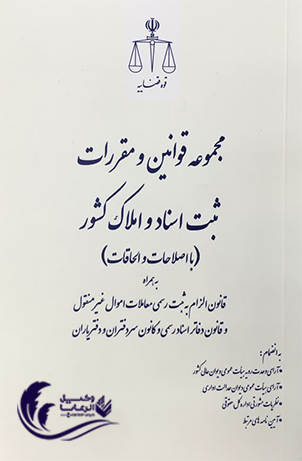 قوه قضاییه
مجموعه قوانین و مقررات
ثبت اسناد و املاک کشور
(با اصلاحات و الحاقات)
به همراه
قانون الزام به ثبت رسمی معاملات اموال غیرمنقول
و قانون دفاتر اسناد رسمی و کانون سردفتران و دفتریاران
به انضمام:
•آرای وحدت رویه هیأت عمومی دیوان عالی کشور
•آرای هیأت عمومی دیوان عدالت اداری
•نظریات مشورتی اداره کل حقوقی
•آیین نامه های مرتبط
وکیل
الرعایا